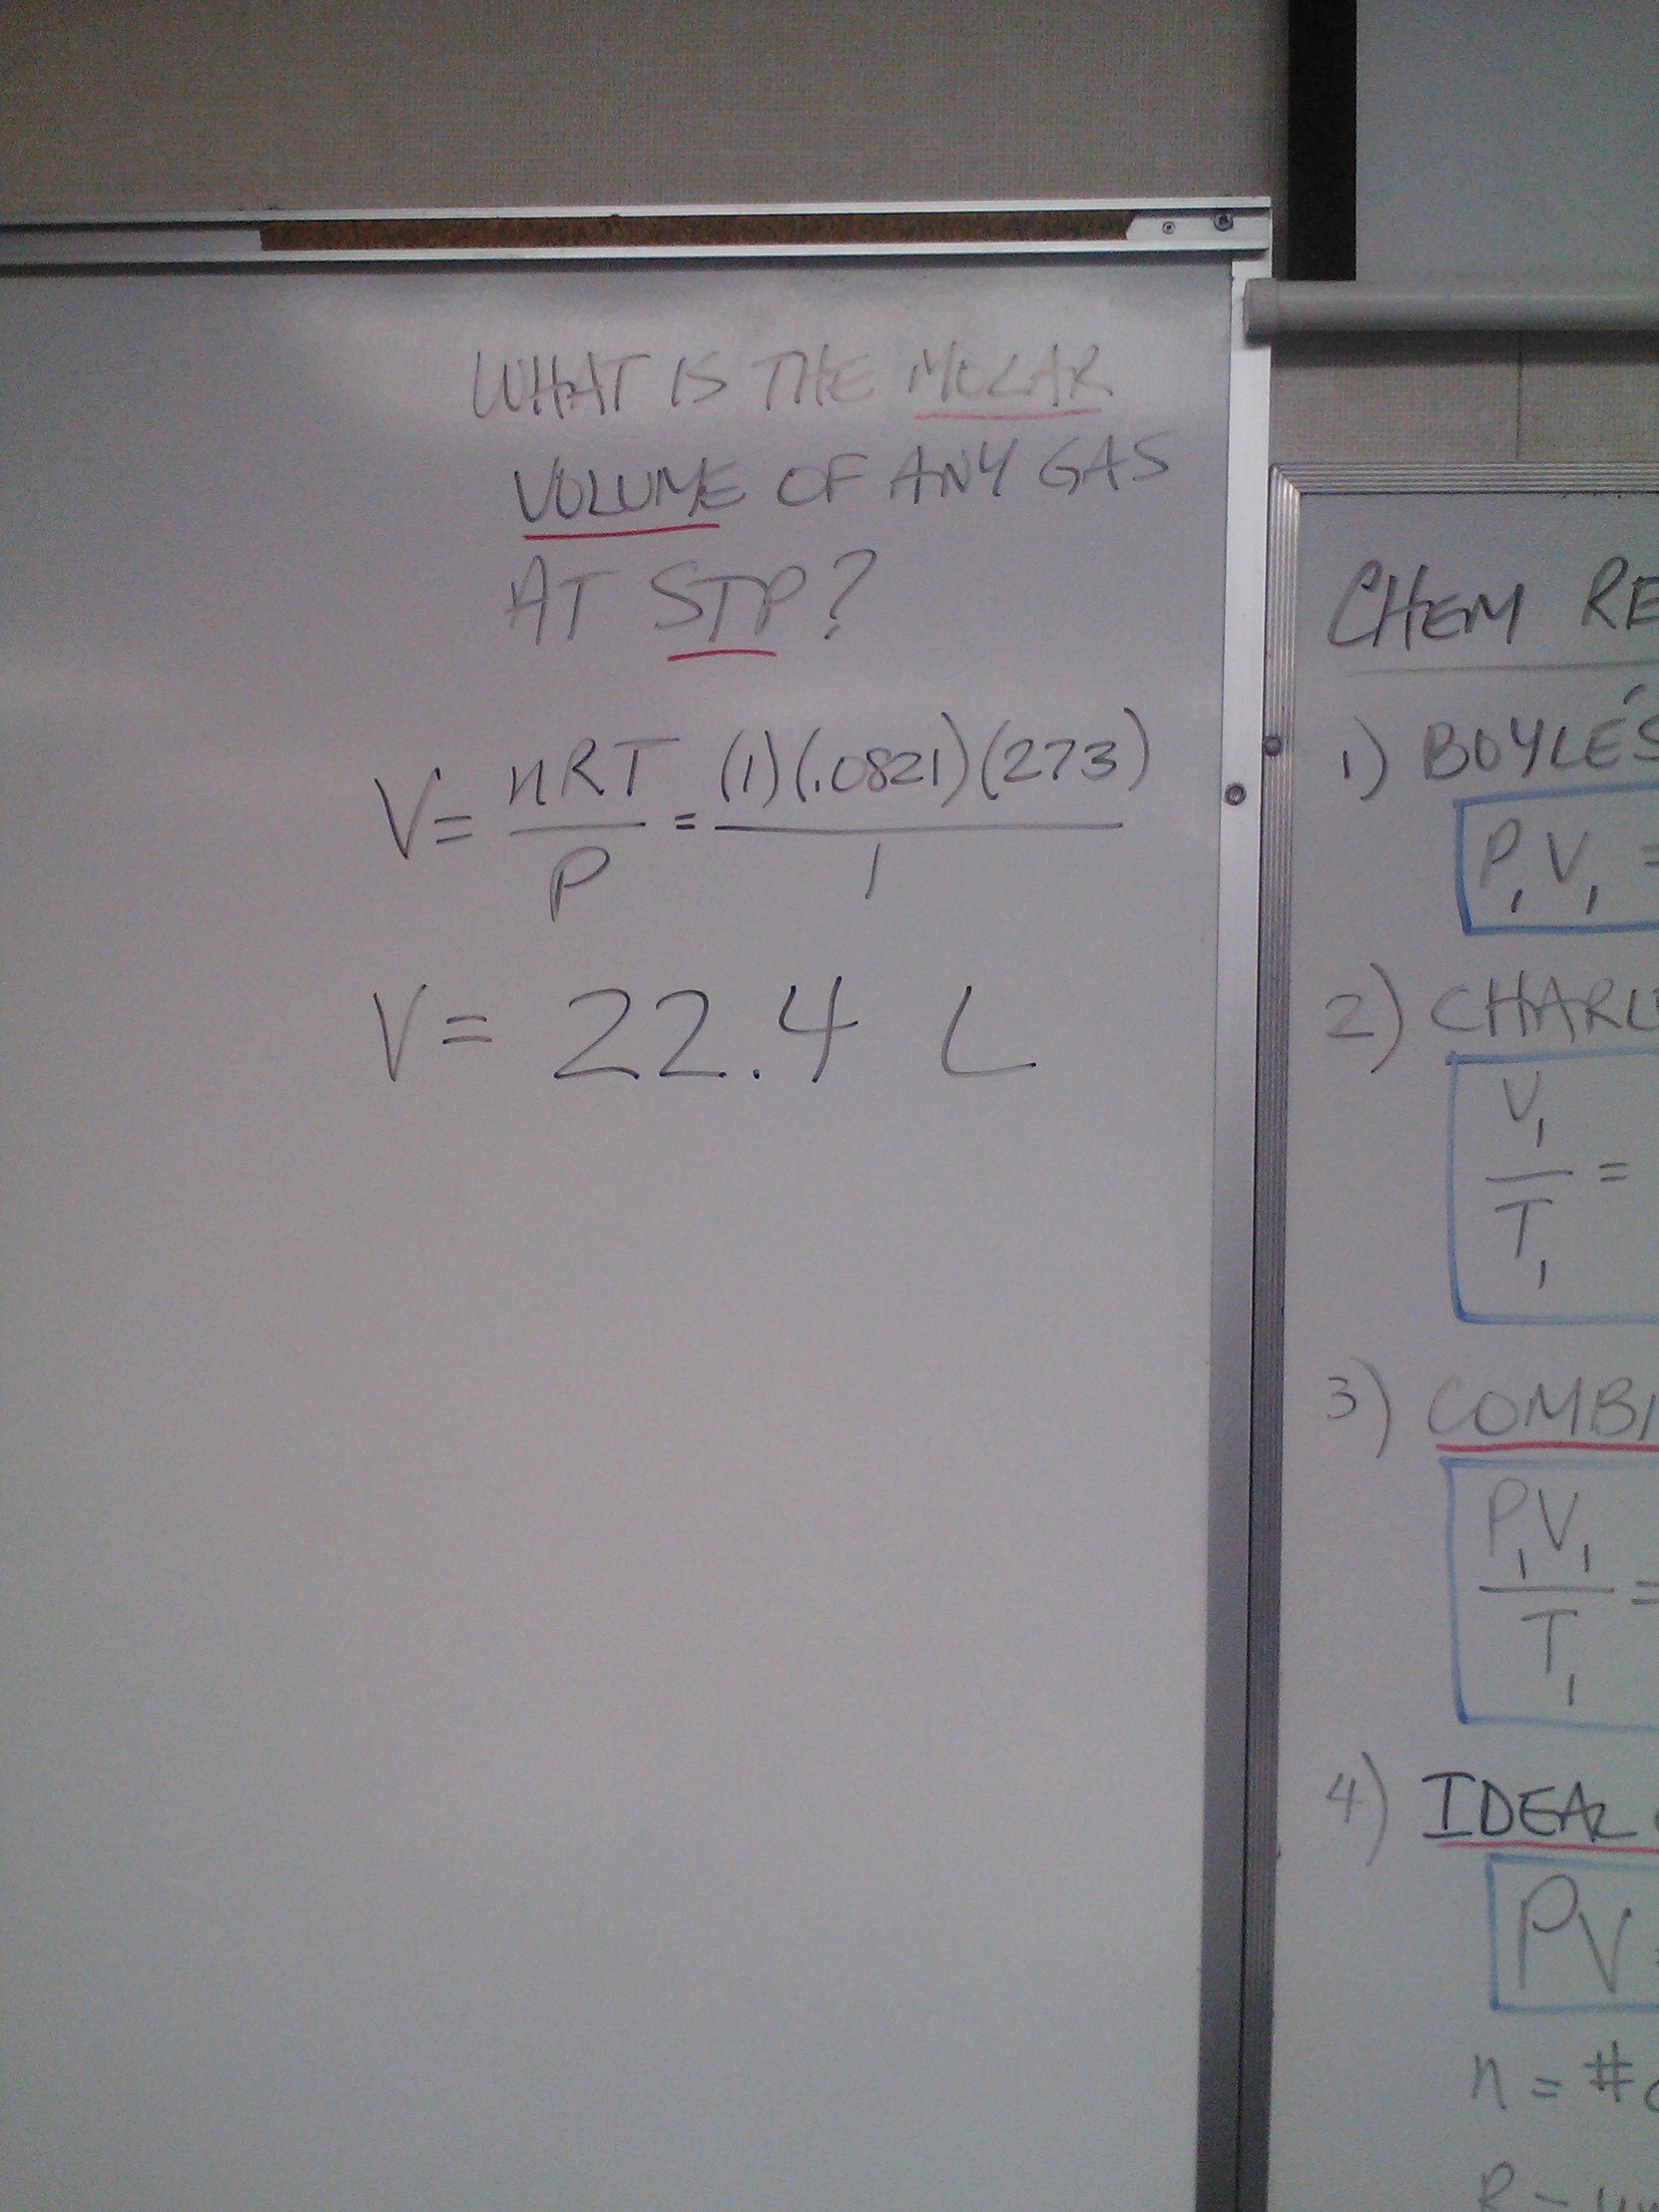 WHAT IS THE MOLAR
VOLUME OF ANY GAS
AT STP?
V = nRT / P = (1)(.0821)(273) / 1
V = 22.4 L
CHEM RE
1) BOYLE'S
P₁V₁ =
2) CHARL
V₁ / T₁ =
3) COMBI
P₁V₁ / T₁ =
4) IDEAL
PV
n = #
R =